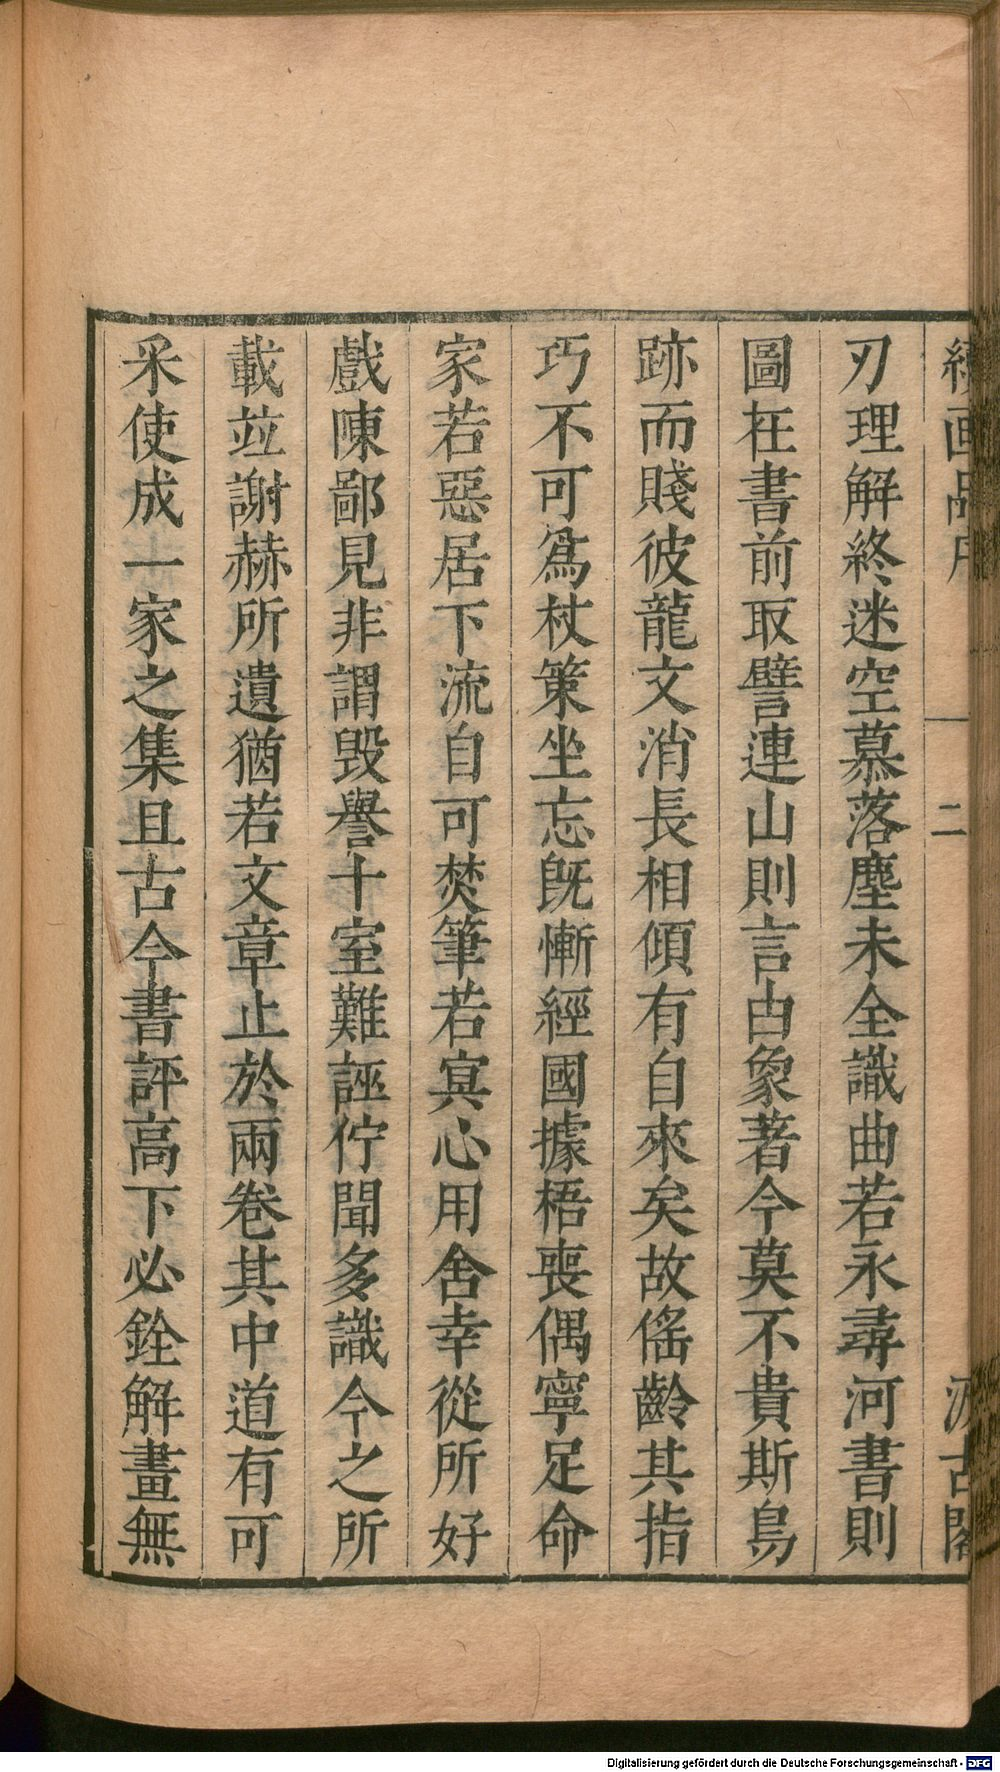 續画品序 二 汲古閣
刃理解終迷空慕落塵未全識曲若永尋河書則
圖在書前取譬連山則言由象著今莫不貴斯鳥
跡而賤彼龍文消長相傾有自來矣故倕齡其指
巧不可爲杖策坐忘旣慚經國據梧喪偶寧足命
家若惡居下流自可焚筆若冥心用舍幸從所好
戲陳鄙見非謂毀譽十室難誣佇聞多識今之所
載竝謝赫所遺猶若文章止於兩卷其中道有可
采使成一家之集且古今書評高下必銓解畫無
Digitalisierung gefördert durch die Deutsche Forschungsgemeinschaft - DFG